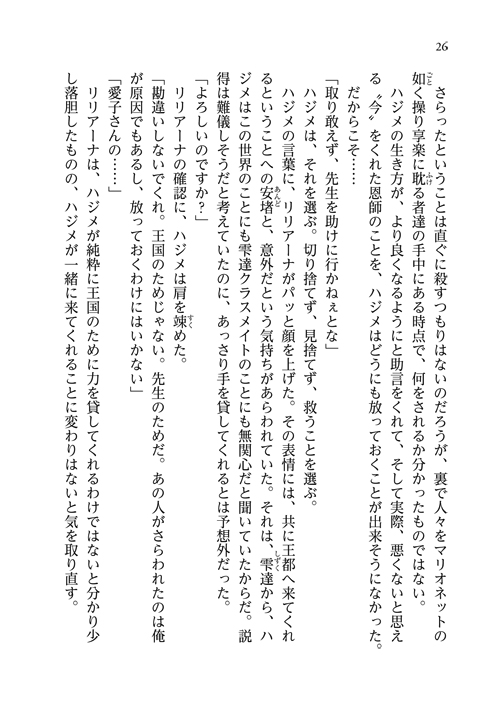 26
さらったということは直ぐに殺すつもりはないのだろうが、裏で人々をマリオネットの
如く操り享楽に耽る者達の手中にある時点で、何をされるか分かったものではない。
ハジメの生き方が、より良くなるようにと助言をくれて、そして実際、悪くないと思え
る〝今〟をくれた恩師のことを、ハジメはどうにも放っておくことが出来そうになかった。
だからこそ……
「取り敢えず、先生を助けに行かねぇとな」
ハジメは、それを選ぶ。切り捨てず、見捨てず、救うことを選ぶ。
ハジメの言葉に、リリアーナがパッと顔を上げた。その表情には、共に王都へ来てくれ
るということへの安堵と、意外だという気持ちがあらわれていた。それは、雫達から、ハ
ジメはこの世界のことにも雫達クラスメイトのことにも無関心だと聞いていたからだ。説
得は難儀しそうだと考えていたのに、あっさり手を貸してくれるとは予想外だった。
「よろしいのですか？」
リリアーナの確認に、ハジメは肩を竦めた。
「勘違いしないでくれ。王国のためじゃない。先生のためだ。あの人がさらわれたのは俺
が原因でもあるし、放っておくわけにはいかない」
「愛子さんの……」
リリアーナは、ハジメが純粋に王国のために力を貸してくれるわけではないと分かり少
し落胆したものの、ハジメが一緒に来てくれることに変わりはないと気を取り直す。